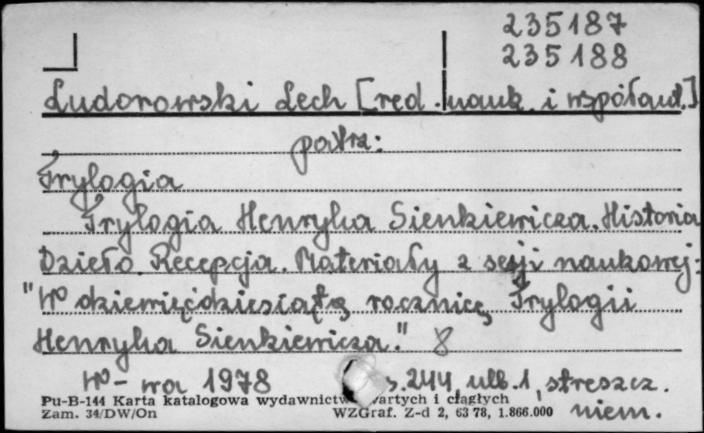 235187
235188
Ludorowski Lech [red. nauk. i współaut.]
patrz:
Trylogia
Trylogia Henryka Sienkiewicza. Historia
Dzieło. Recepcja. Materiały z sesji naukowej:
"W dziewięćdziesiątą rocznicę Trylogii
Henryka Sienkiewicza." 8
W-wa 1978 s. 244, ulb. 1, streszcz.
niem.
Pu-B-144 Karta katalogowa wydawnictw zwartych i ciągłych
Zam. 34/DW/On WZGraf. Z-d 2, 63 78, 1.866.000